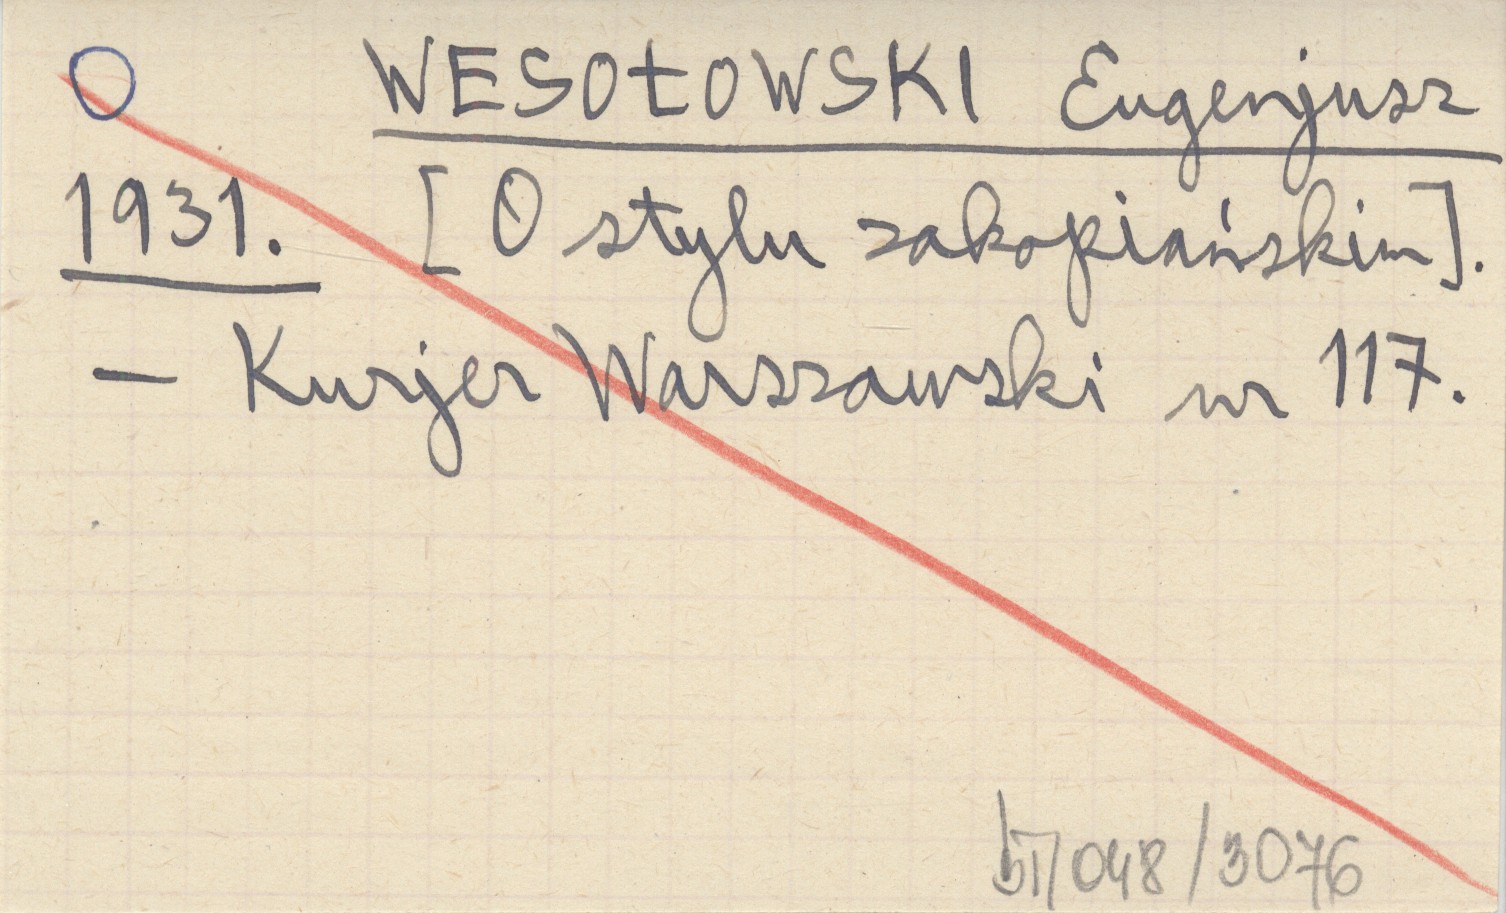 WESOŁOWSKI Eugenjusz
1931. [O stylu zakopiańskim].
— Kurjer Warszawski nr 117.
/048/3076